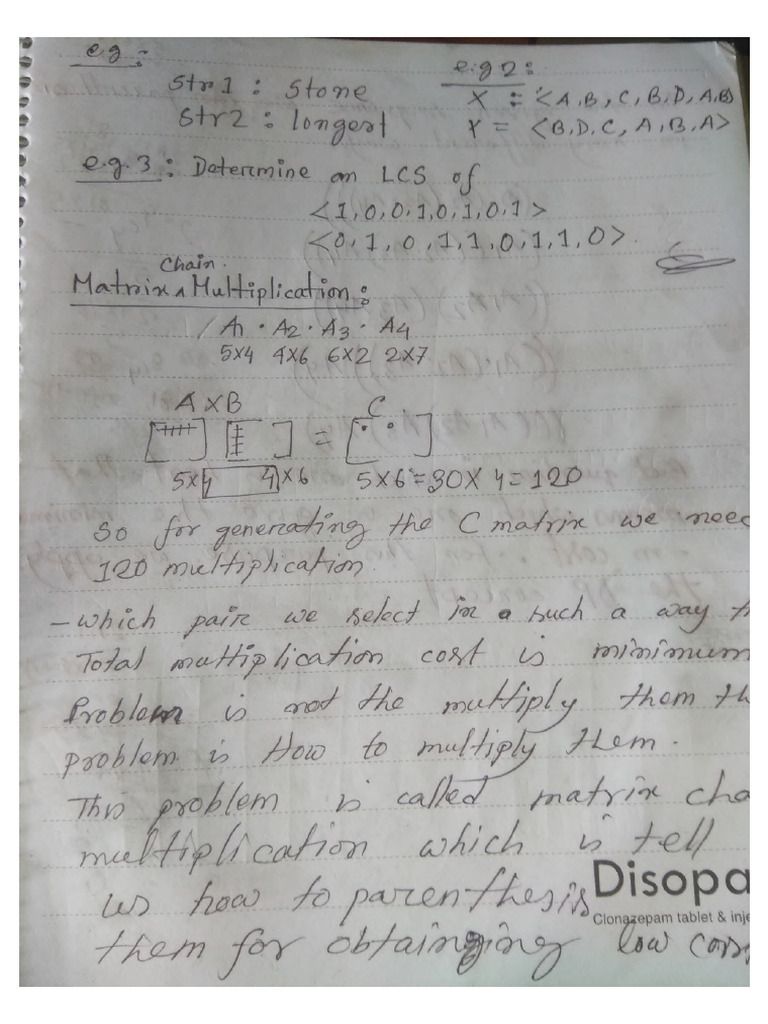 e.g :
Str1 : Stone
Str2 : longest
e.g 2 :
X : <A, B, C, B, D, A, B>
Y = <B, D, C, A, B, A>
e.g. 3 : Determine an LCS of
<1, 0, 0, 1, 0, 1, 0, 1>
<0, 1, 0, 1, 1, 0, 1, 1, 0>.
Matrix ^ Chain. Multiplication :
A1 · A2 · A3 · A4
5x4 4x6 6x2 2x7
A x B C
[ ] [ ] = [ ]
5x4 4x6 5x6 = 30 x 4 = 120
So for generating the C matrix we need
120 multiplication.
- which pair we select in a such a way th
Total multiplication cost is minimum
Problem is not the multiply them th
problem is How to multiply them.
This problem is called matrix cha
multiplication which is tell
us how to parenthesis
them for obtaining low cos
Disopa
Clonazepam tablet & inje